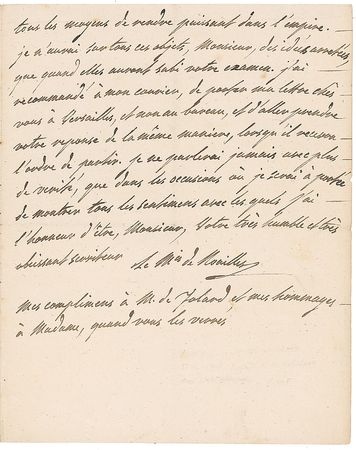 tous les moyens de rendre puissant dans l'empire. —
je n'aurai sur tous ces objets, Monsieur, des idées arrêtées,
que quand elles auront subi votre examen. j'ai —
recommandé à mon courier, de porter ma lettre chés —
vous à Versailles, et non au bureau, et d'aller prendre
votre reponse de la même maniere, lorsqu'il recevra
l'ordre de partir. je ne parlerai jamais avec plus —
de verité, que dans les occasions où je serai à portée
de montrer tous les sentimens avec les quels j'ai —
l'honneur d'être, Monsieur, Votre très humble et très
obéissant serviteur
Le Mis de Noailles
mes complimens à M. de et mes hommages —
à Madame, quand vous les verrés